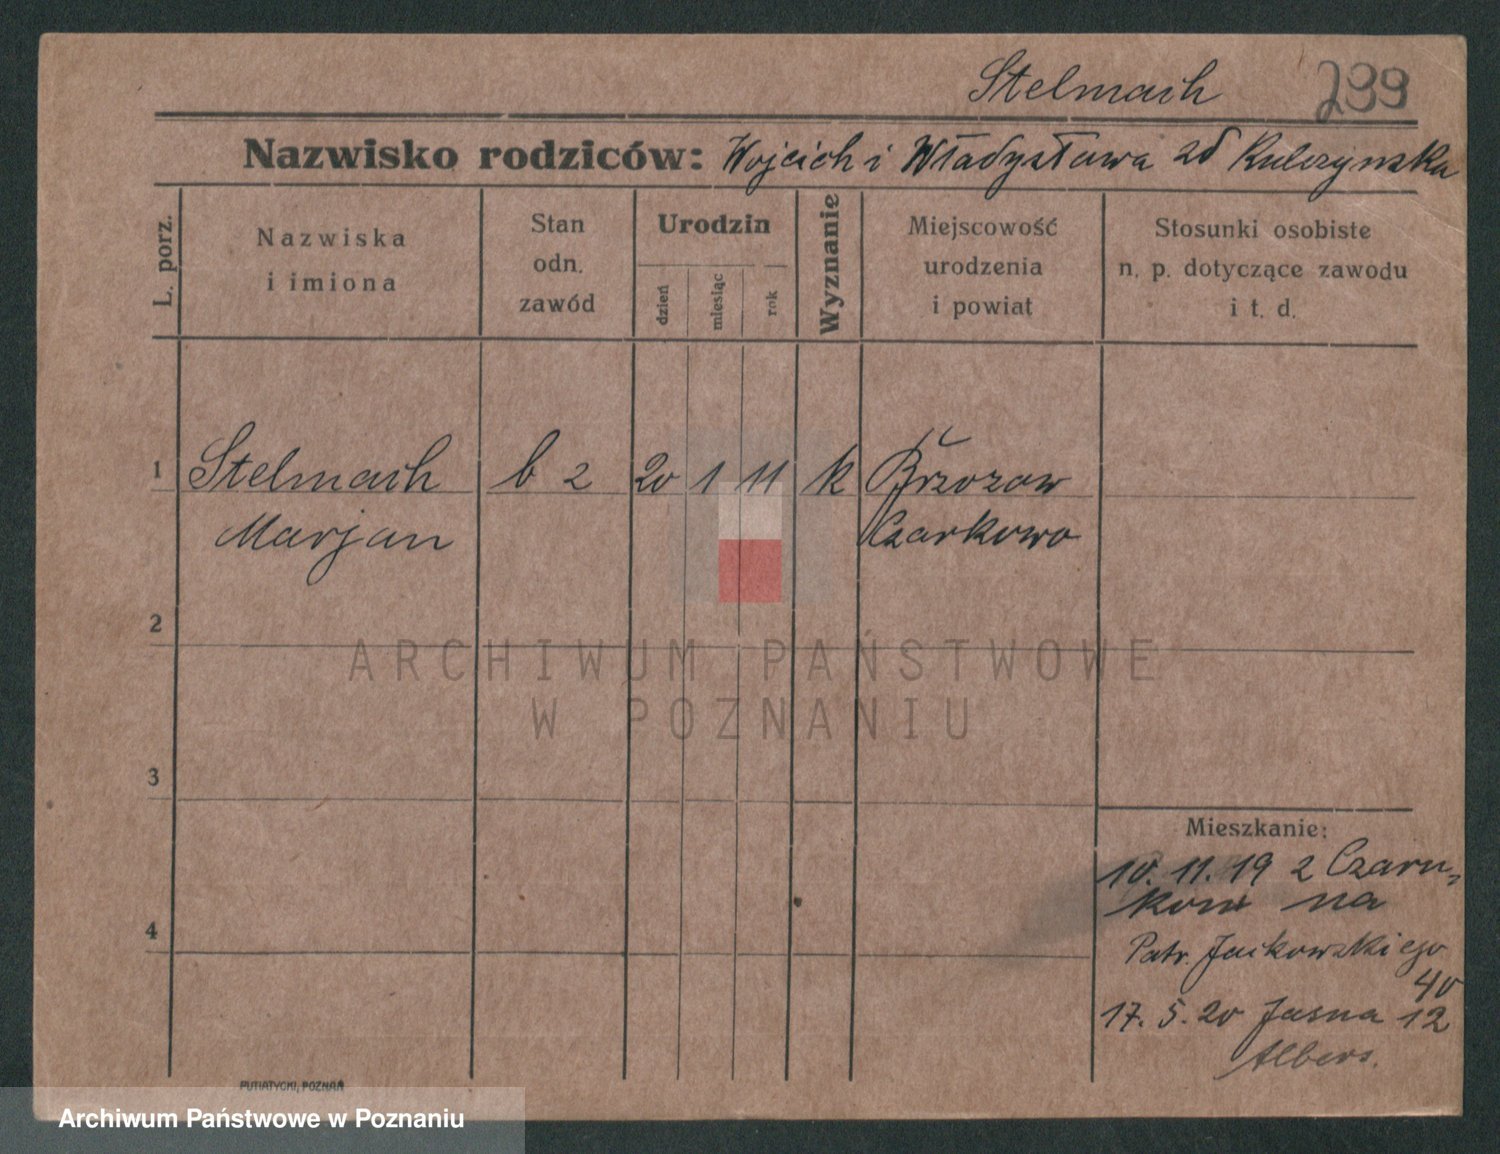 Stelmach 299
Nazwisko rodziców: Wojcich i Władysława zd Kulczynska
L. porz.
Nazwiska
i imiona
Stan
odn.
zawód
Urodzin
dzień
miesiąc
rok
Wyznanie
Miejscowość
urodzenia
i powiat
Stosunki osobiste
n. p. dotyczące zawodu
i t. d.
1 Stelmach b z 20 1 11 k Brzozow
Marjan Czarkowo
2
ARCHIWUM PAŃSTWOWE
W POZNANIU
3
Mieszkanie:
10. 11. 19 z Czarn-
kow na
4
Patr. Jackowskiego
40
17. 5. 20 Jasna 12
Albers.
PUTIATYCKI, POZNAŃ
Archiwum Państwowe w Poznaniu